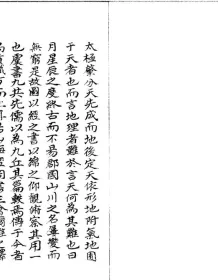 太極肇分天先成而地後定天依形地附氣地囿
于天者也而言地理者難於言天何為其難也日
月星辰之度終古而不易郡國山川之名屢變而
無窮是故圖以經之書以緯之仰觀俯察其用一
也虞書九共先儒以為九丘其篇軼焉傳于今者